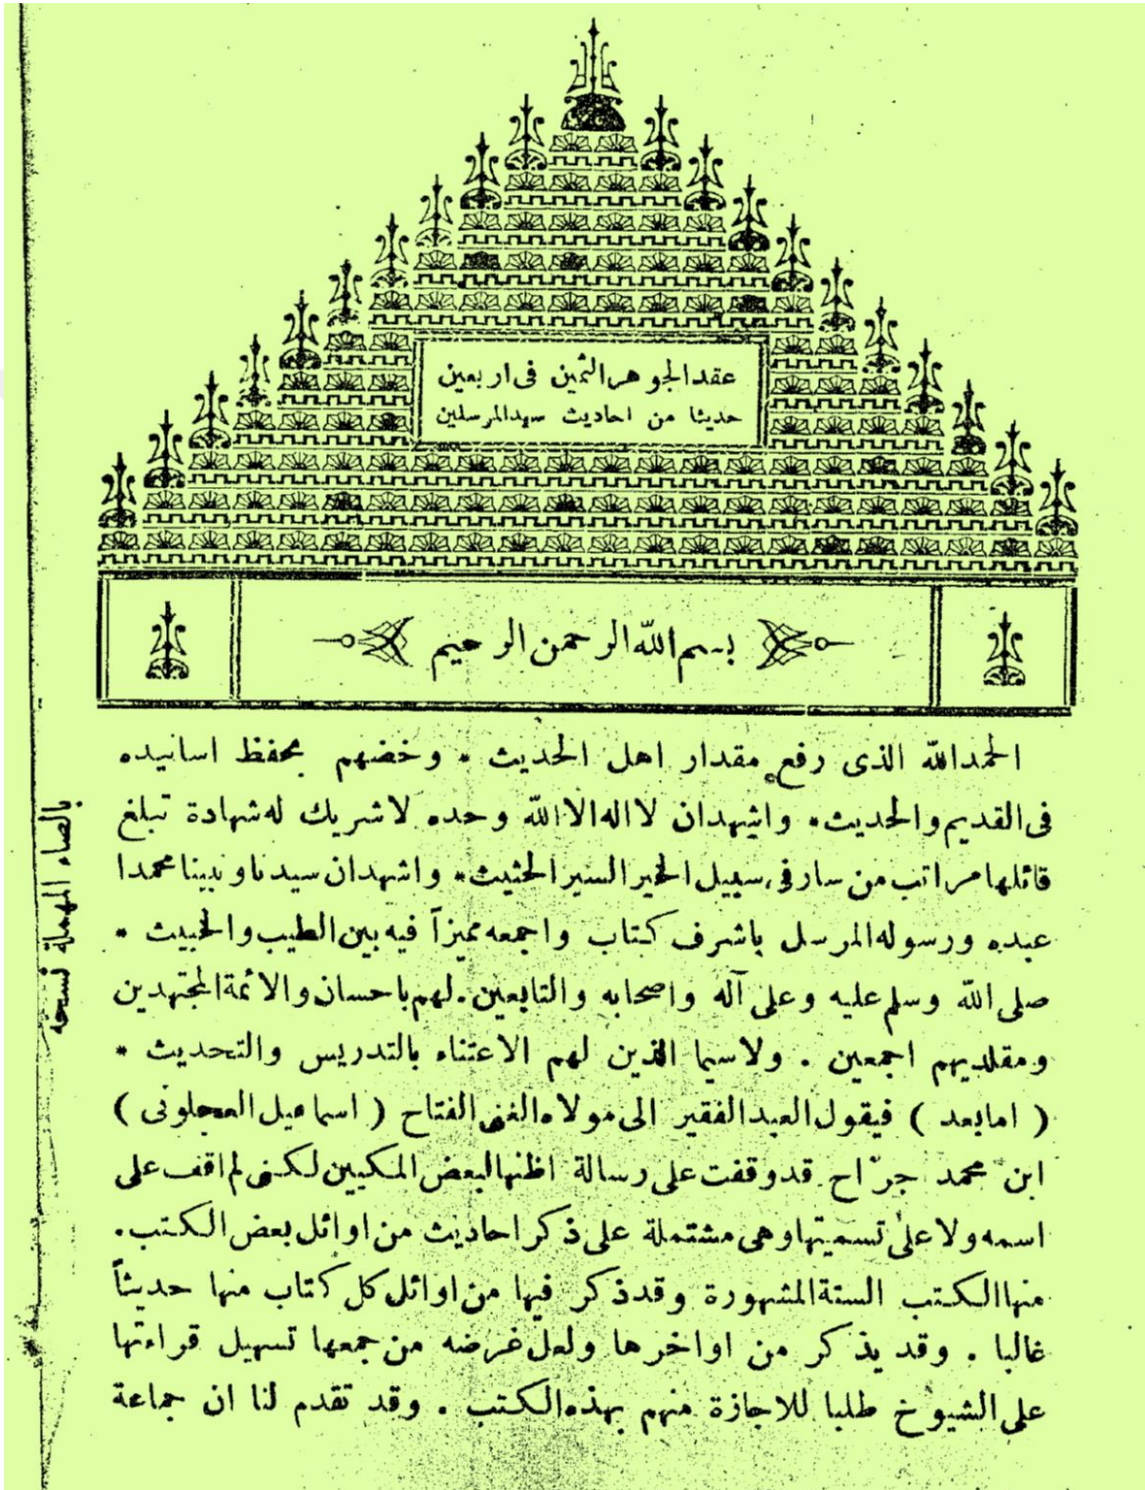 عقد الجوهر الثمين فى اربعين
حديثا من احاديث سيد المرسلين
بسم الله الرحمن الرحيم
الحمد لله الذى رفع مقدار اهل الحديث * وخضهم بحفظ اسانيده
فى القديم والحديث * واشهد ان لا اله الا الله وحده لا شريك له شهادة تبلغ
قائلها مراتب من سار فى سبيل الخير السير الحثيث * واشهد ان سيدنا ونبينا محمدا
عبده ورسوله المرسل باشرف كتاب واجمعه مميزاً فيه بين الطيب والخبيث *
صلى الله وسلم عليه وعلى آله واصحابه والتابعين . لهم باحسان والائمة المجتهدين
ومقلديهم اجمعين . ولاسيما الذين لهم الاعتناء بالتدريس والتحديث *
( اما بعد ) فيقول العبد الفقير الى مولاه الغنى الفتاح ( اسماعيل العجلونى )
ابن محمد جرّاح قد وقفت على رسالة اظنها لبعض المكيين لكنى لم اقف على
اسمه ولا على تسميتها وهى مشتملة على ذكر احاديث من اوائل بعض الكتب .
منها الكتب الستة المشهورة وقد ذكر فيها من اوائل كل كتاب منها حديثاً
غالبا . وقد يذكر من اواخرها ولعل غرضه من جمعها تسهيل قراءتها
على الشيوخ طلبا للاجازة منهم بهذه الكتب . وقد تقدم لنا ان جماعة
بالصاد المهملة نسخه